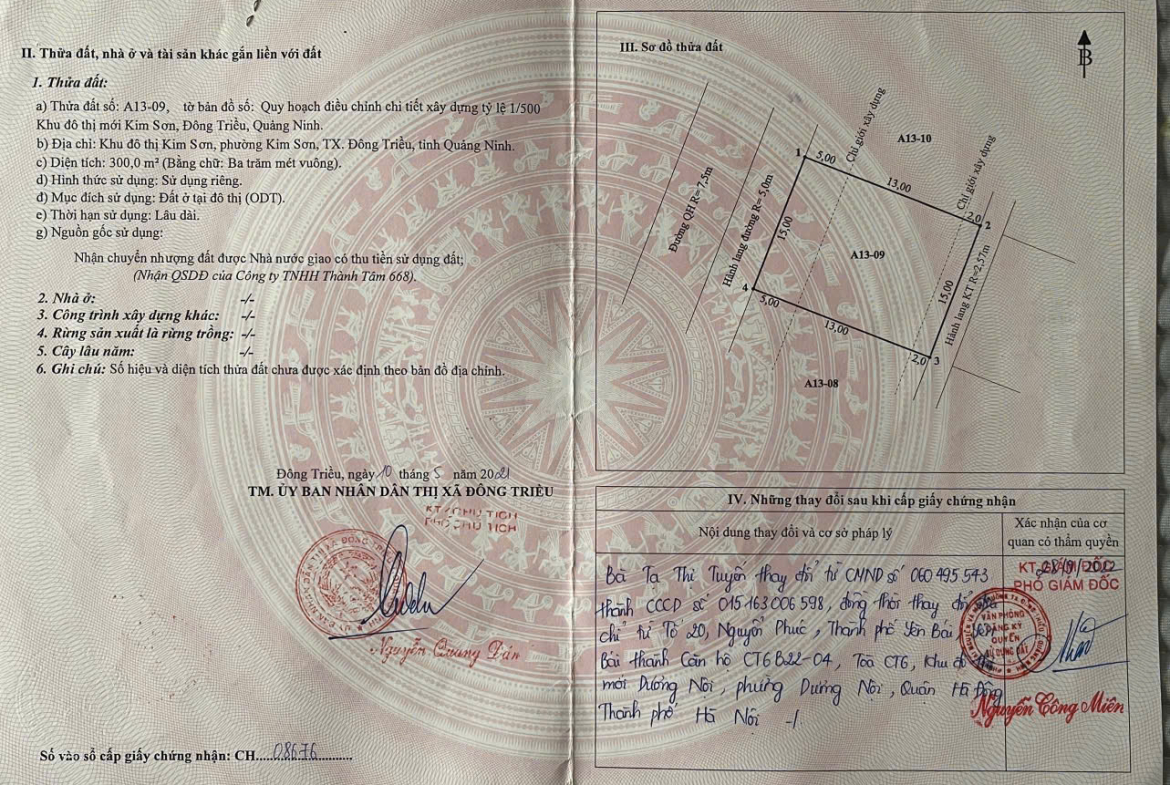 II. Thửa đất, nhà ở và tài sản khác gắn liền với đất
1. Thửa đất:
a) Thửa đất số: A13-09, tờ bản đồ số: Quy hoạch điều chỉnh chi tiết xây dựng tỷ lệ 1/500
Khu đô thị mới Kim Sơn, Đông Triều, Quảng Ninh.
b) Địa chỉ: Khu đô thị Kim Sơn, phường Kim Sơn, TX. Đông Triều, tỉnh Quảng Ninh.
c) Diện tích: 300,0 m² (Bằng chữ: Ba trăm mét vuông).
d) Hình thức sử dụng: Sử dụng riêng.
đ) Mục đích sử dụng: Đất ở tại đô thị (ODT).
e) Thời hạn sử dụng: Lâu dài.
g) Nguồn gốc sử dụng:
Nhận chuyển nhượng đất được Nhà nước giao có thu tiền sử dụng đất;
(Nhận QSDĐ của Công ty TNHH Thành Tâm 668).
2. Nhà ở: -/-
3. Công trình xây dựng khác: -/-
4. Rừng sản xuất là rừng trồng: -/-
5. Cây lâu năm: -/-
6. Ghi chú: Số hiệu và diện tích thửa đất chưa được xác định theo bản đồ địa chính.
Đông Triều, ngày 10 tháng 5 năm 2021
TM. ỦY BAN NHÂN DÂN THỊ XÃ ĐÔNG TRIỀU
KT. CHỦ TỊCH
PHÓ CHỦ TỊCH
Nguyễn Quang Dân
Số vào sổ cấp giấy chứng nhận: CH....08676..........
III. Sơ đồ thửa đất
B
A13-10
Chỉ giới xây dựng
Chỉ giới xây dựng
1
5,00
13,00
2,0
2
Đường QH R= 7,5m
Hành lang đường R= 5,0m
15,00
A13-09
15,00
Hành lang KT R=2,57m
4
5,00
13,00
2,0
3
A13-08
IV. Những thay đổi sau khi cấp giấy chứng nhận
Nội dung thay đổi và cơ sở pháp lý
Xác nhận của cơ
quan có thẩm quyền
Bà Tạ Thị Tuyến thay đổi từ CMND số 060495543
thành CCCD số 015163006598, đồng thời thay đổi địa
chỉ từ Tổ 20, Nguyễn Phúc, Thành phố Yên Bái
Bái thành Căn hộ CT6B22-04, Toà CT6, Khu đô thị
mới Dương Nội, phường Dương Nội, Quận Hà Đông
Thành phố Hà Nội -/
KT.GIÁM ĐỐC
PHÓ GIÁM ĐỐC
VĂN PHÒNG
ĐĂNG KÝ
QUYỀN
SỬ DỤNG ĐẤT
Nguyễn Công Miên